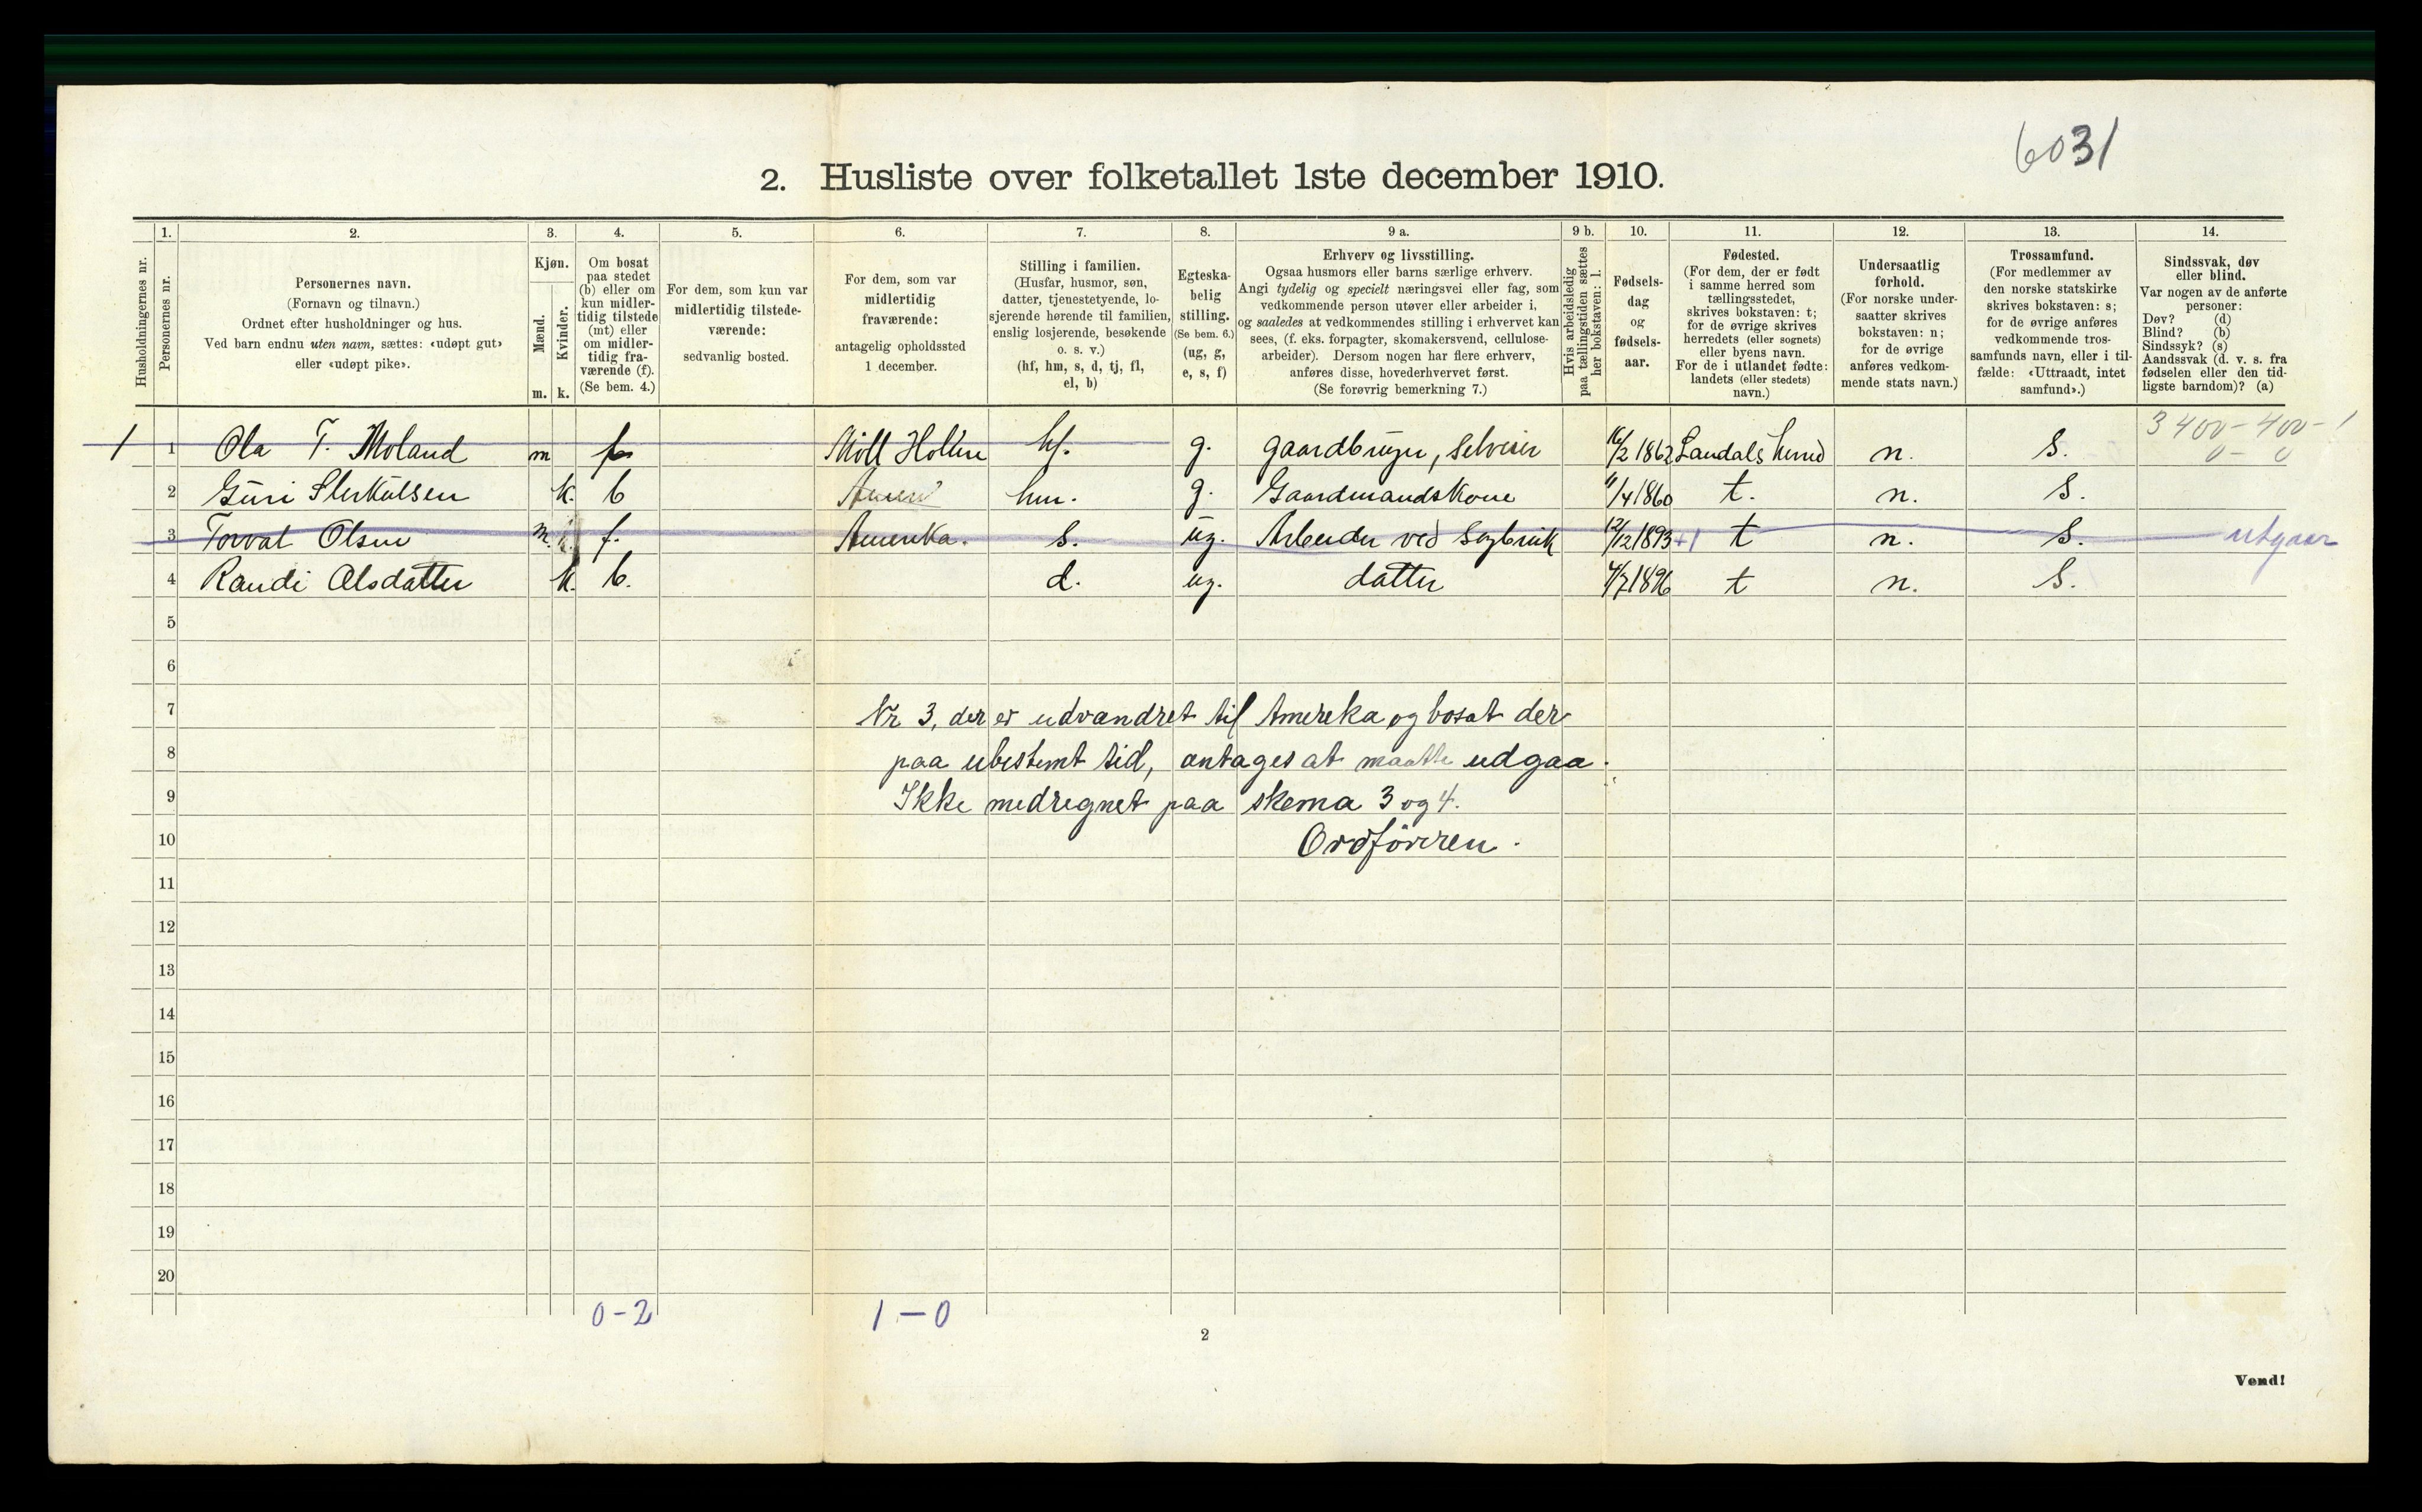 6031
2. Husliste over folketallet 1ste december 1910.
1. 2. 3. 4. 5. 6. 7. 8. 9 a. 9 b. 10. 11. 12. 13. 14.
Husholdningernes nr.
Personernes nr.
Personernes navn.
(Fornavn og tilnavn.)
Ordnet efter husholdninger og hus.
Ved barn endnu uten navn, sættes: «udøpt gut»
eller «udøpt pike».
Kjøn.
Mænd.
Kvinder.
m. k.
Om bosat
paa stedet
(b) eller om
kun midler-
tidig tilstede
(mt) eller
om midler-
tidig fra-
værende (f).
(Se bem. 4.)
For dem, som kun var
midlertidig tilstede-
værende:
sedvanlig bosted.
For dem, som var
midlertidig
fraværende:
antagelig opholdssted
1 december.
Stilling i familien.
(Husfar, husmor, søn,
datter, tjenestetyende, lo-
sjerende hørende til familien,
enslig losjerende, besøkende
o. s. v.)
(hf, hm, s, d, tj, fl,
el, b)
Egteska-
belig
stilling.
(Se bem. 6.)
(ug, g,
e, s, f)
Erhverv og livsstilling.
Ogsaa husmors eller barns særlige erhverv.
Angi tydelig og specielt næringsvei eller fag, som
vedkommende person utøver eller arbeider i,
og saaledes at vedkommendes stilling i erhvervet kan
sees, (f. eks. forpagter, skomakersvend, cellulose-
arbeider). Dersom nogen har flere erhverv,
anføres disse, hovederhvervet først.
(Se forøvrig bemerkning 7.)
Hvis arbeidsledig
paa tællingstiden sættes
her bokstaven: l.
Fødsels-
dag
og
fødsels-
aar.
Fødested.
(For dem, der er født
i samme herred som
tællingsstedet,
skrives bokstaven: t;
for de øvrige skrives
herredets (eller sognets)
eller byens navn.
For de i utlandet fødte:
landets (eller stedets)
navn.)
Undersaatlig
forhold.
(For norske under-
saatter skrives
bokstaven: n;
for de øvrige
anføres vedkom-
mende stats navn.)
Trossamfund.
(For medlemmer av
den norske statskirke
skrives bokstaven: s;
for de øvrige anføres
vedkommende tros-
samfunds navn, eller i til-
fælde: «Uttraadt, intet
samfund».)
Sindssvak, døv
eller blind.
Var nogen av de anførte
personer:
Døv? (d)
Blind? (b)
Sindssyk? (s)
Aandssvak (d. v. s. fra
fødselen eller den tid-
ligste barndom)? (a)
3400-400-1
0-0
1 1 Ola T. Moland m f Holum hf. g. gaardbruger, Selveier 16/2 1862 Laudals herred n. S.
2 Guri k. b hm. g. Gaardmandskone 11/4 1860 t. n. S.
3 Torval Olsen m. f. Amerika. s. ug. Arbeider ved Sagbruk 12/12 1893 +1 t n. S. utgaar
4 Randi Olsdatter k. b. d. ug. datter 4/7 1896 t n. S.
5
6
7 Nr 3, der er udvandret til Amereka og bosat der
8 paa ubestemt tid, antages at maatte udgaa.
9 Ikke medregnet paa skema 3 og 4.
10 Ordføreren.
11
12
13
14
15
16
17
18
19
20
0-2 1-0
2
Vend!